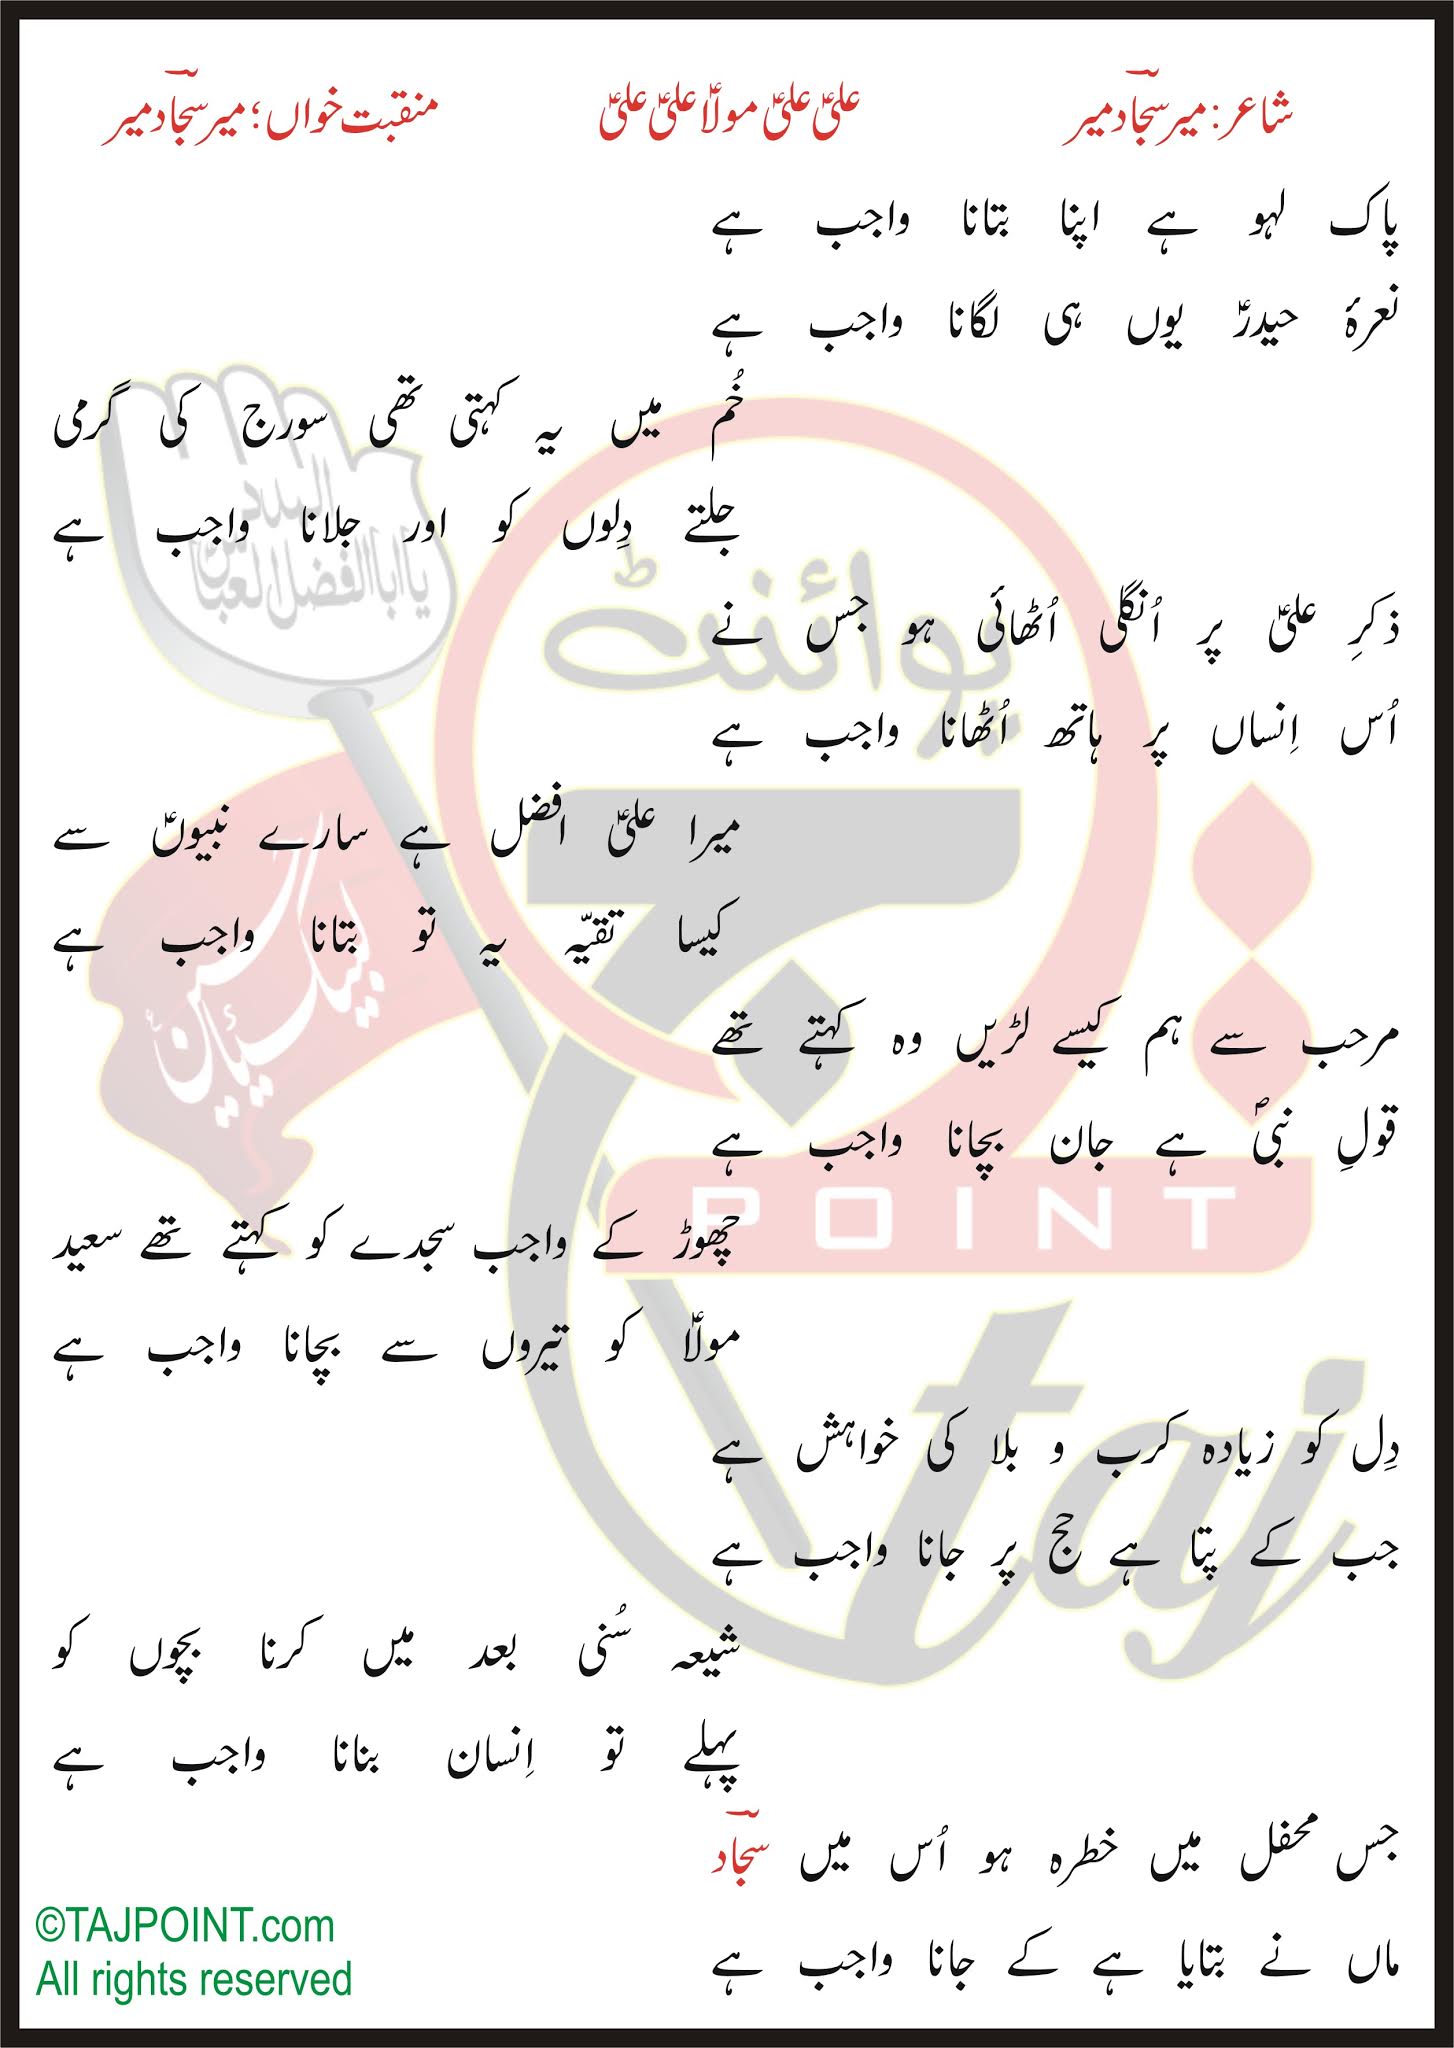 شاعر: میر سجاؔد میر
علیؑ علیؑ مولاؑ علیؑ علیؑ
منقبت خواں؛ میر سجاؔد میر
پاک لہو ہے اپنا بتانا واجب ہے
نعرۂ حیدرؑ یوں ہی لگانا واجب ہے
خُم میں یہ کہتی تھی سورج کی گرمی
جلتے دِلوں کو اور جلانا واجب ہے
ذکرِ علیؑ پر اُنگلی اُٹھائی ہو جس نے
اُس اِنساں پر ہاتھ اُٹھانا واجب ہے
میرا علیؑ افضل ہے سارے نبیوںؑ سے
کیسا تقیّہ یہ تو بتانا واجب ہے
مرحب سے ہم کیسے لڑیں وہ کہتے تھے
قولِ نبیؐ ہے جان بچانا واجب ہے
چھوڑ کے واجب سجدے کو کہتے تھے سعید
مولاؑ کو تیروں سے بچانا واجب ہے
دِل کو زیادہ کرب و بلا کی خواہش ہے
جب کے پتا ہے حج پر جانا واجب ہے
شیعہ سُنی بعد میں کرنا بچوں کو
پہلے تو اِنسان بنانا واجب ہے
جس محفل میں خطرہ ہو اُس میں سجاؔد
ماں نے بتایا ہے کے جانا واجب ہے
©TAJPOINT.com
All rights reserved
المدد
یا ابا الفضل العباس
لبیک یا حسین
پوائنٹ
تاج
POINT
taj